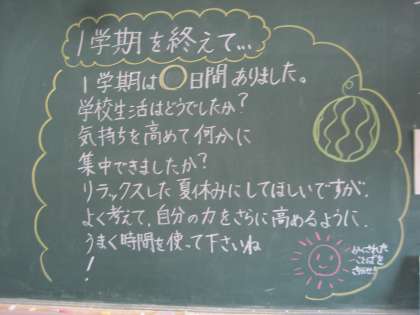 1学期を終えて...
1学期は○日間ありました。
学校生活はどうでしたか?
気持ちを高めて何かに
集中できましたか?
リラックスした夏休みにしてほしいですが、
よく考えて、自分の力をさらに高めるように
うまく時間を使って下さいね
!